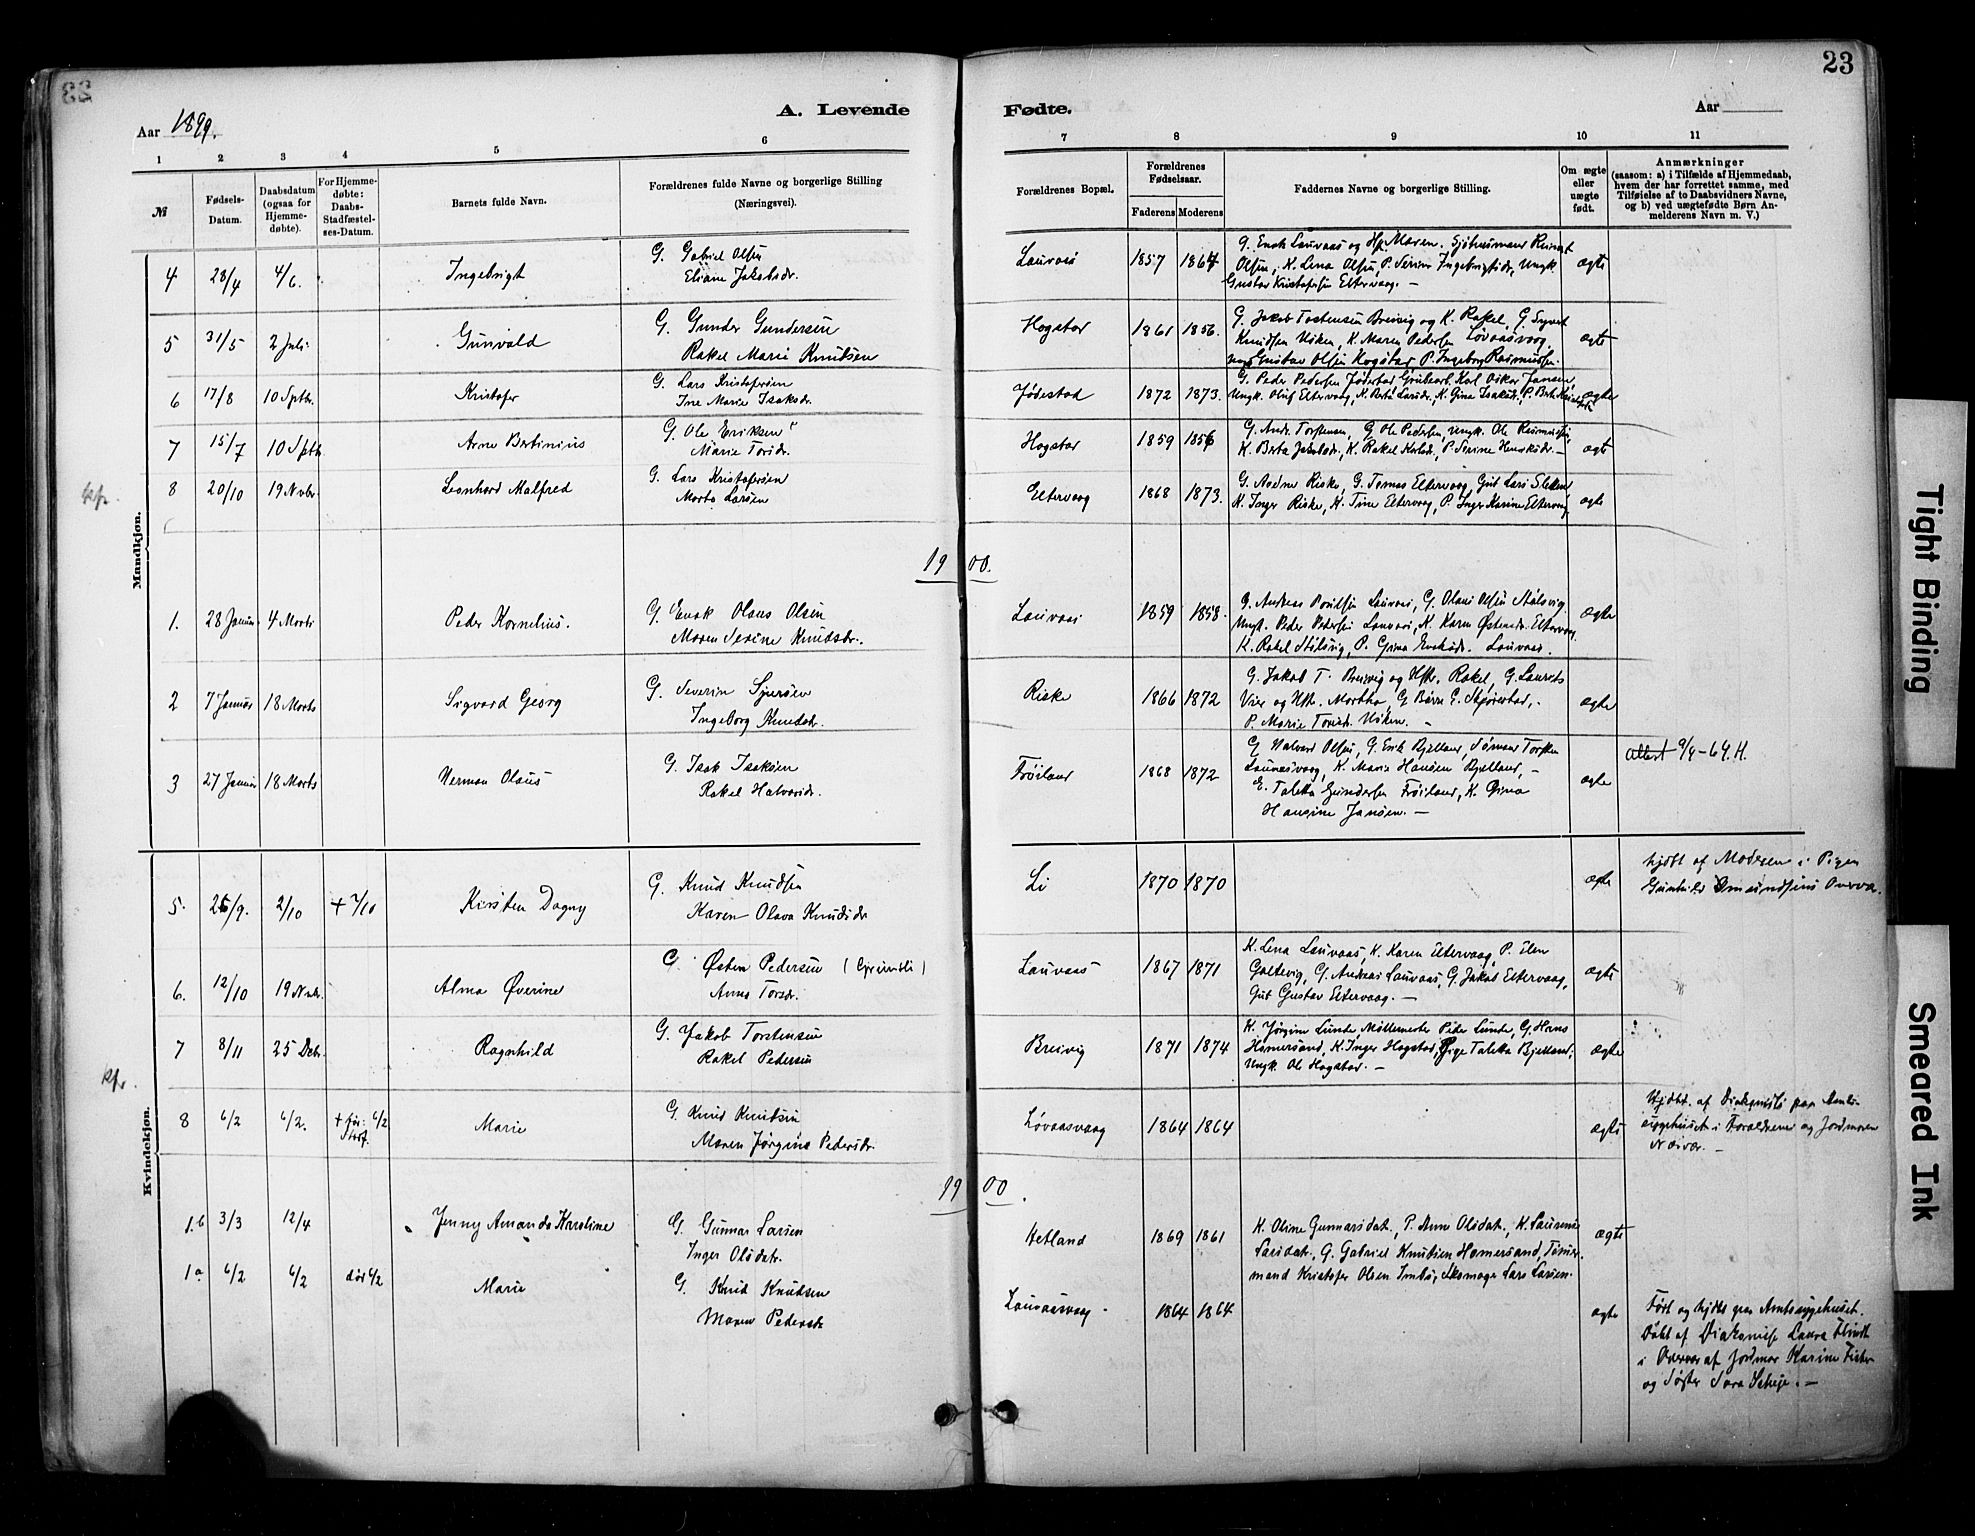 23
A. Levende Fødte.
Aar 1899.
Aar
1 2 3 4 5 6 7 8 9 10 11
№
Fødsels-
Datum.
Daabsdatum
(ogsaa for
Hjemme-
døbte).
For Hjemme-
døbte:
Daabs-
Stadfæstel-
ses-Datum.
Barnets fulde Navn.
Forældrenes fulde Navne og borgerlige Stilling
(Næringsvei).
Forældrenes Bopæl.
Forældrenes
Fødselsaar.
Faderens Moderens
Faddernes Navne og borgerlige Stilling.
Om ægte
eller
uægte
født.
Anmærkninger
(saasom: a) i Tilfælde af Hjemmedaab,
hvem der har forrettet samme, med
Tilføielse af to Daabsvidners Navne,
og b) ved uægtefødte Børn An-
melderens Navn m. V.)
Mandkjøn.
4 28/4 4/6. Ingebrigt
G. Gabriel Olsen
Eliane Jakobsdr.
Lauvaas 1857 1864
G. Enok Lauvaas og Maren.
Olsen, K. Lena Olsen, P. Serine Ingebrigtsdr, Ungk.
Gustav Kristofersen Eltervaag. —
ægte
5 31/5 2 Juli Gunvald
G. Gunder Gundersen
Rakel Marie Knudsen
Hogstad 1861 1856.
G. Jakob Tostensen Breivig og K. Rakel, G. Syvert
Knudsen Viken, K. Maren Pedersen Løvaasvaag,
Gustav Olsen Hogstad, P. Ingeborg Rasmussen.
ægte
6 17/8 10 Septbr. Kristofer
G. Lars Kristofersen
Ine Marie Isaksdr.
Jødestad 1872 1873.
G. Peder Pedersen Jødestad, Karl Oskar Jansen,
Ungk. Oluf Eltervaag, K. Berta Larsdr, K. Gina Isaksdr,
ægte
7 15/7 10 Septb. Arne Bertinius
G. Ole Eriksen
Marie Torsdr.
Hogstad 1859 1856
G. Andr. Torstensen, G. Ole Pedersen, Ungk. Ole Rasmussen,
K. Berta Jakobsdr., K. Rakel, P. Serine —
ægte
8 20/10 19 Nvbr. Leonhard Malfred
G. Lars Kristofersen
Marta Larsen
Eltervaag 1868 1873.
G. Aadne Riske, G. Tomas Eltervaag, Gut Lars
K. Inger Riske, K. Tine Eltervaag, P. Inger Karine Eltervaag
ægte
19 00.
1. 28 Januar 4 Marts Peder Kornelius.
G. Enok Olaus Olsen
Maren Serine Knudsdr.
Lauvaas 1859 1858.
G. Andreas Poulsen Lauvaas, G. Olaus Olsen Stølsvig.
Ungk. Peder Pedersen Lauvaas, K. Karen Østensdr. Eltervaag
K. Rakel Stølsvig, P. Grina Enoksdr. Lauvaas.
ægte
2 7 Januar 18 Marts Sigvard Georg
G. Severin Sjursen
Ingeborg Knudsdr.
Riske 1866 1872
G. Jakob T. Breivig og Hstr. Rakel, G. Laurits
Vier og Hstr. Martha, G. Børre E. —
P. Marie Torsdr. Viken. —
ægte
3 27 Januar 18 Marts Herman Olaus
G. Isak Isaksen
Rakel Halvorsdr.
Frøiland 1868 1872
G. Halvard Olsen, G. Erik Bjelland, Sømand Torsten
Lauvasvaag, K. Marie Hansen Bjelland, —
E. Taletta Gundersen Frøiland, K. Gina
Hansine Jansen. —
ægte
Attest 9/4–64. H.
Kvindekjøn.
5. 26/9. 2/10 + 7/10 Kirsten Dagny
G. Knud Knudsen
Karen Olava Knudsdr
Li 1870 1870
ægte
hjdbt af Moderen i Pigen
Gunhild Omundsens Overvær.
6. 12/10 19 Nvbr Alma Øverine
G. Østen Pedersen
Anna Torsdr.
Lauvaas 1867 1871
K. Lena Lauvaas, K. Karen Eltervaag, P. Elen
Galtevig, G. Andreas Lauvaas, G. Jakob Eltervaag,
Gut Gustav Eltervaag. —
ægte
7 8/11 25 Debr. Ragnhild
G. Jakob Torstensen
Rakel Pedersen
Breivig 1871 1874
K. Jørgine Lunde, Møllemester Peder Lunde, G. Hans
Hamersand, K. Inger Hogstad, Pige Taletta Bjelland,
Ungk. Ole Hogstad. —
ægte
8 6/2 6/2. 6/2 Marie
G. Knud Knudsen
Maren Jørgine Pedersdr.
Løvaasvaag 1864 1864
ægte
Hjdbt. af Diakonisse paa Amts-
sygehuset i Forældrene og Jordmoren
Nærvær. —
19 00
1.b 3/3 12/4 Jenny Amanda Karoline
G. Gunnar Larsen
Inger Olsdatr.
Hetland 1869 1861
K. Oline Gunnarsdat., P. Anne Olsdat., K. Laurense
Larsdat., G. Gabriel Knudsen Hamersand, Tømer-
mand Kristofer Olsen, Skomager Lars Larsen.
ægte
1a 6/2 6/2 død 6/2 Marie
G. Knud Knudsen
Maren Pedersdr
Lauvaasvaag. 1864 1864
ægte
Født og hjdbt paa Amtssygehuset.
Døbt af Diakonisse Laura
i Overvær af Jordmor Karine
og Søster Sara
Tight Binding
Smeared Ink